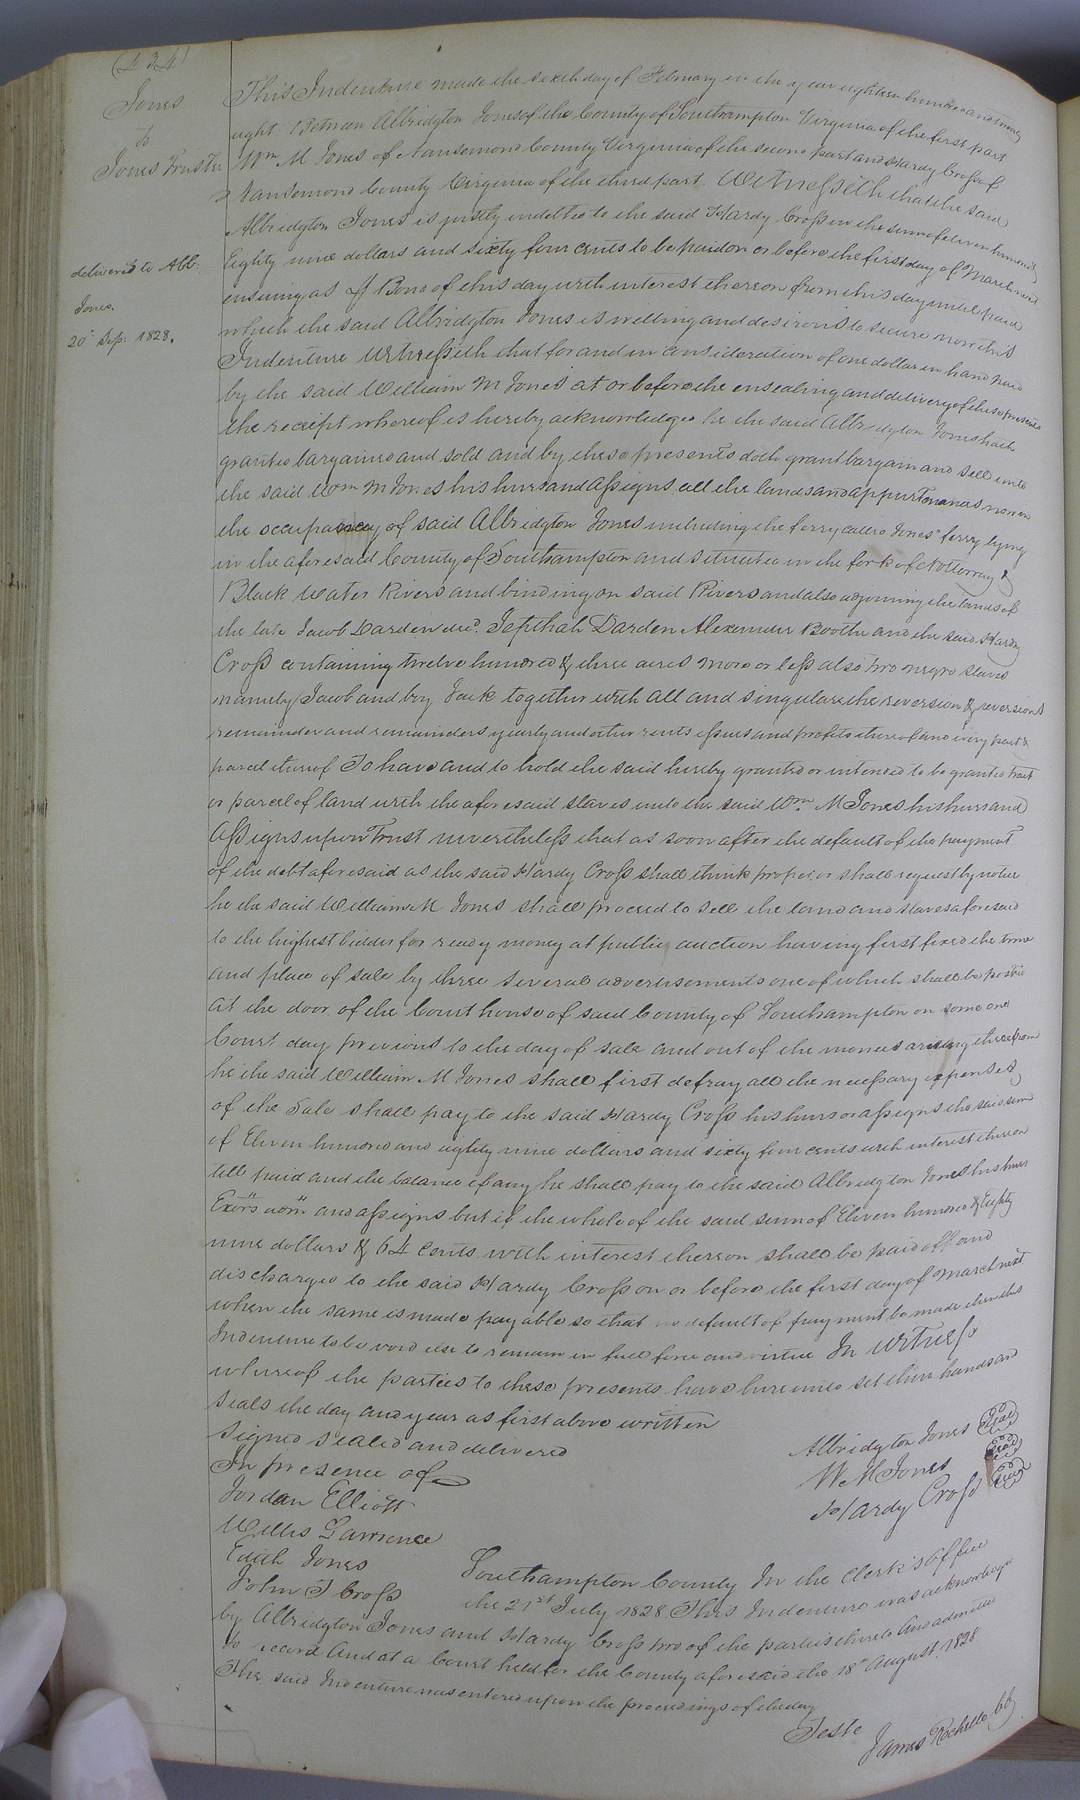 (434)
Jones
to
Jones Trustee
delivered to Alb:
Jones.
20 Sep: 1828.
This Indenture made the sixth day of February in the year eighteen hundred and twenty
eight Between Albridgton Jones of the County of Southampton Virginia of the first part
Wm. M Jones of Nansemond County Virginia of the second part and Hardy Cross of
Nansemond County Virginia of the third part. Witnesseth that the said
Albridgton Jones is justly indebted to the said Hardy Cross in the sum of eleven hundred &
Eighty nine dollars and sixty four cents to be paid on or before the first day of March next
ensuing as pr Bond of this day with interest thereon from this day until paid
which the said Albridgton Jones is willing and desirous to secure now this
Indenture Witnesseth that for and in consideration of one dollar in hand paid
by the said William M Jones at or before the ensealing and delivery of these presents
the receipt whereof is hereby acknowledged he the said Albridgton Jones hath
granted bargained and sold and by these presents doth grant bargain and sell unto
the said Wm M Jones his heirs and assigns all the lands and appurtenances now in
the occupancy of said Albridgton Jones including the ferry called Jones' ferry lying
in the aforesaid County of Southampton and situated in the fork of Nottoway &
Black Water Rivers and binding on said Rivers and also adjoining the lands of
the late Jacob Darden decd. Jepthah Darden Alexander Boothe and the said Hardy
Cross containing twelve hundred & three acres more or less also two negro slaves
namely Jacob and boy Jack together with all and singular the reversion & reversions
remainder and remainders yearly and other rents issues and profits thereof and every part &
parcel thereof To have and to hold the said hereby granted or intended to be granted tract
or parcel of land with the aforesaid slaves unto the said Wm. M Jones his heirs and
Assigns upon Trust nevertheless that as soon after the default of the payment
of the debt aforesaid as the said Hardy Cross shall think proper or shall request by notice
he the said William M Jones shall proceed to sell the land and slaves aforesaid
to the highest bidder for ready money at public auction having first fixed the time
and place of sale by three several advertisements one of which shall be posted
at the door of the Court house of said County of Southampton on some one
Court day previous to the day of sale and out of the monies arising therefrom
he the said William M Jones shall first defray all the necessary expenses
of the Sale shall pay to the said Hardy Cross his heirs or assigns the said sum
of Eleven hundred and eighty nine dollars and sixty four cents with interest thereon
till paid and the balance if any he shall pay to the said Albridgton Jones his heirs
Exors adm and assigns but if the whole of the said sum of Eleven hundred & Eighty
nine dollars & 64 cents with interest thereon shall be paid off and
discharged to the said Hardy Cross on or before the first day of March next
when the same is made payable so that no default of payment be made then this
Indenture to be void else to remain in full force and virtue In Witness
whereof the parties to these presents have hereunto set their hands and
seals the day and year as first above written
Signed sealed and delivered
In presence of
Jordan Elliott
Willis Lawrence
Edith Jones
John T Cross
Albridgton Jones Seal
W M Jones Seal
Hardy Cross Seal
Southampton County In the Clerk's Office
the 21st July 1828 This Indenture was acknowledged
by Albridgton Jones and Hardy Cross two of the parties thereto and admitted
to record And at a Court held for the County aforesaid the 18th August 1828
The said Indenture was entered upon the proceedings of the day
Teste
James Rochelle CC